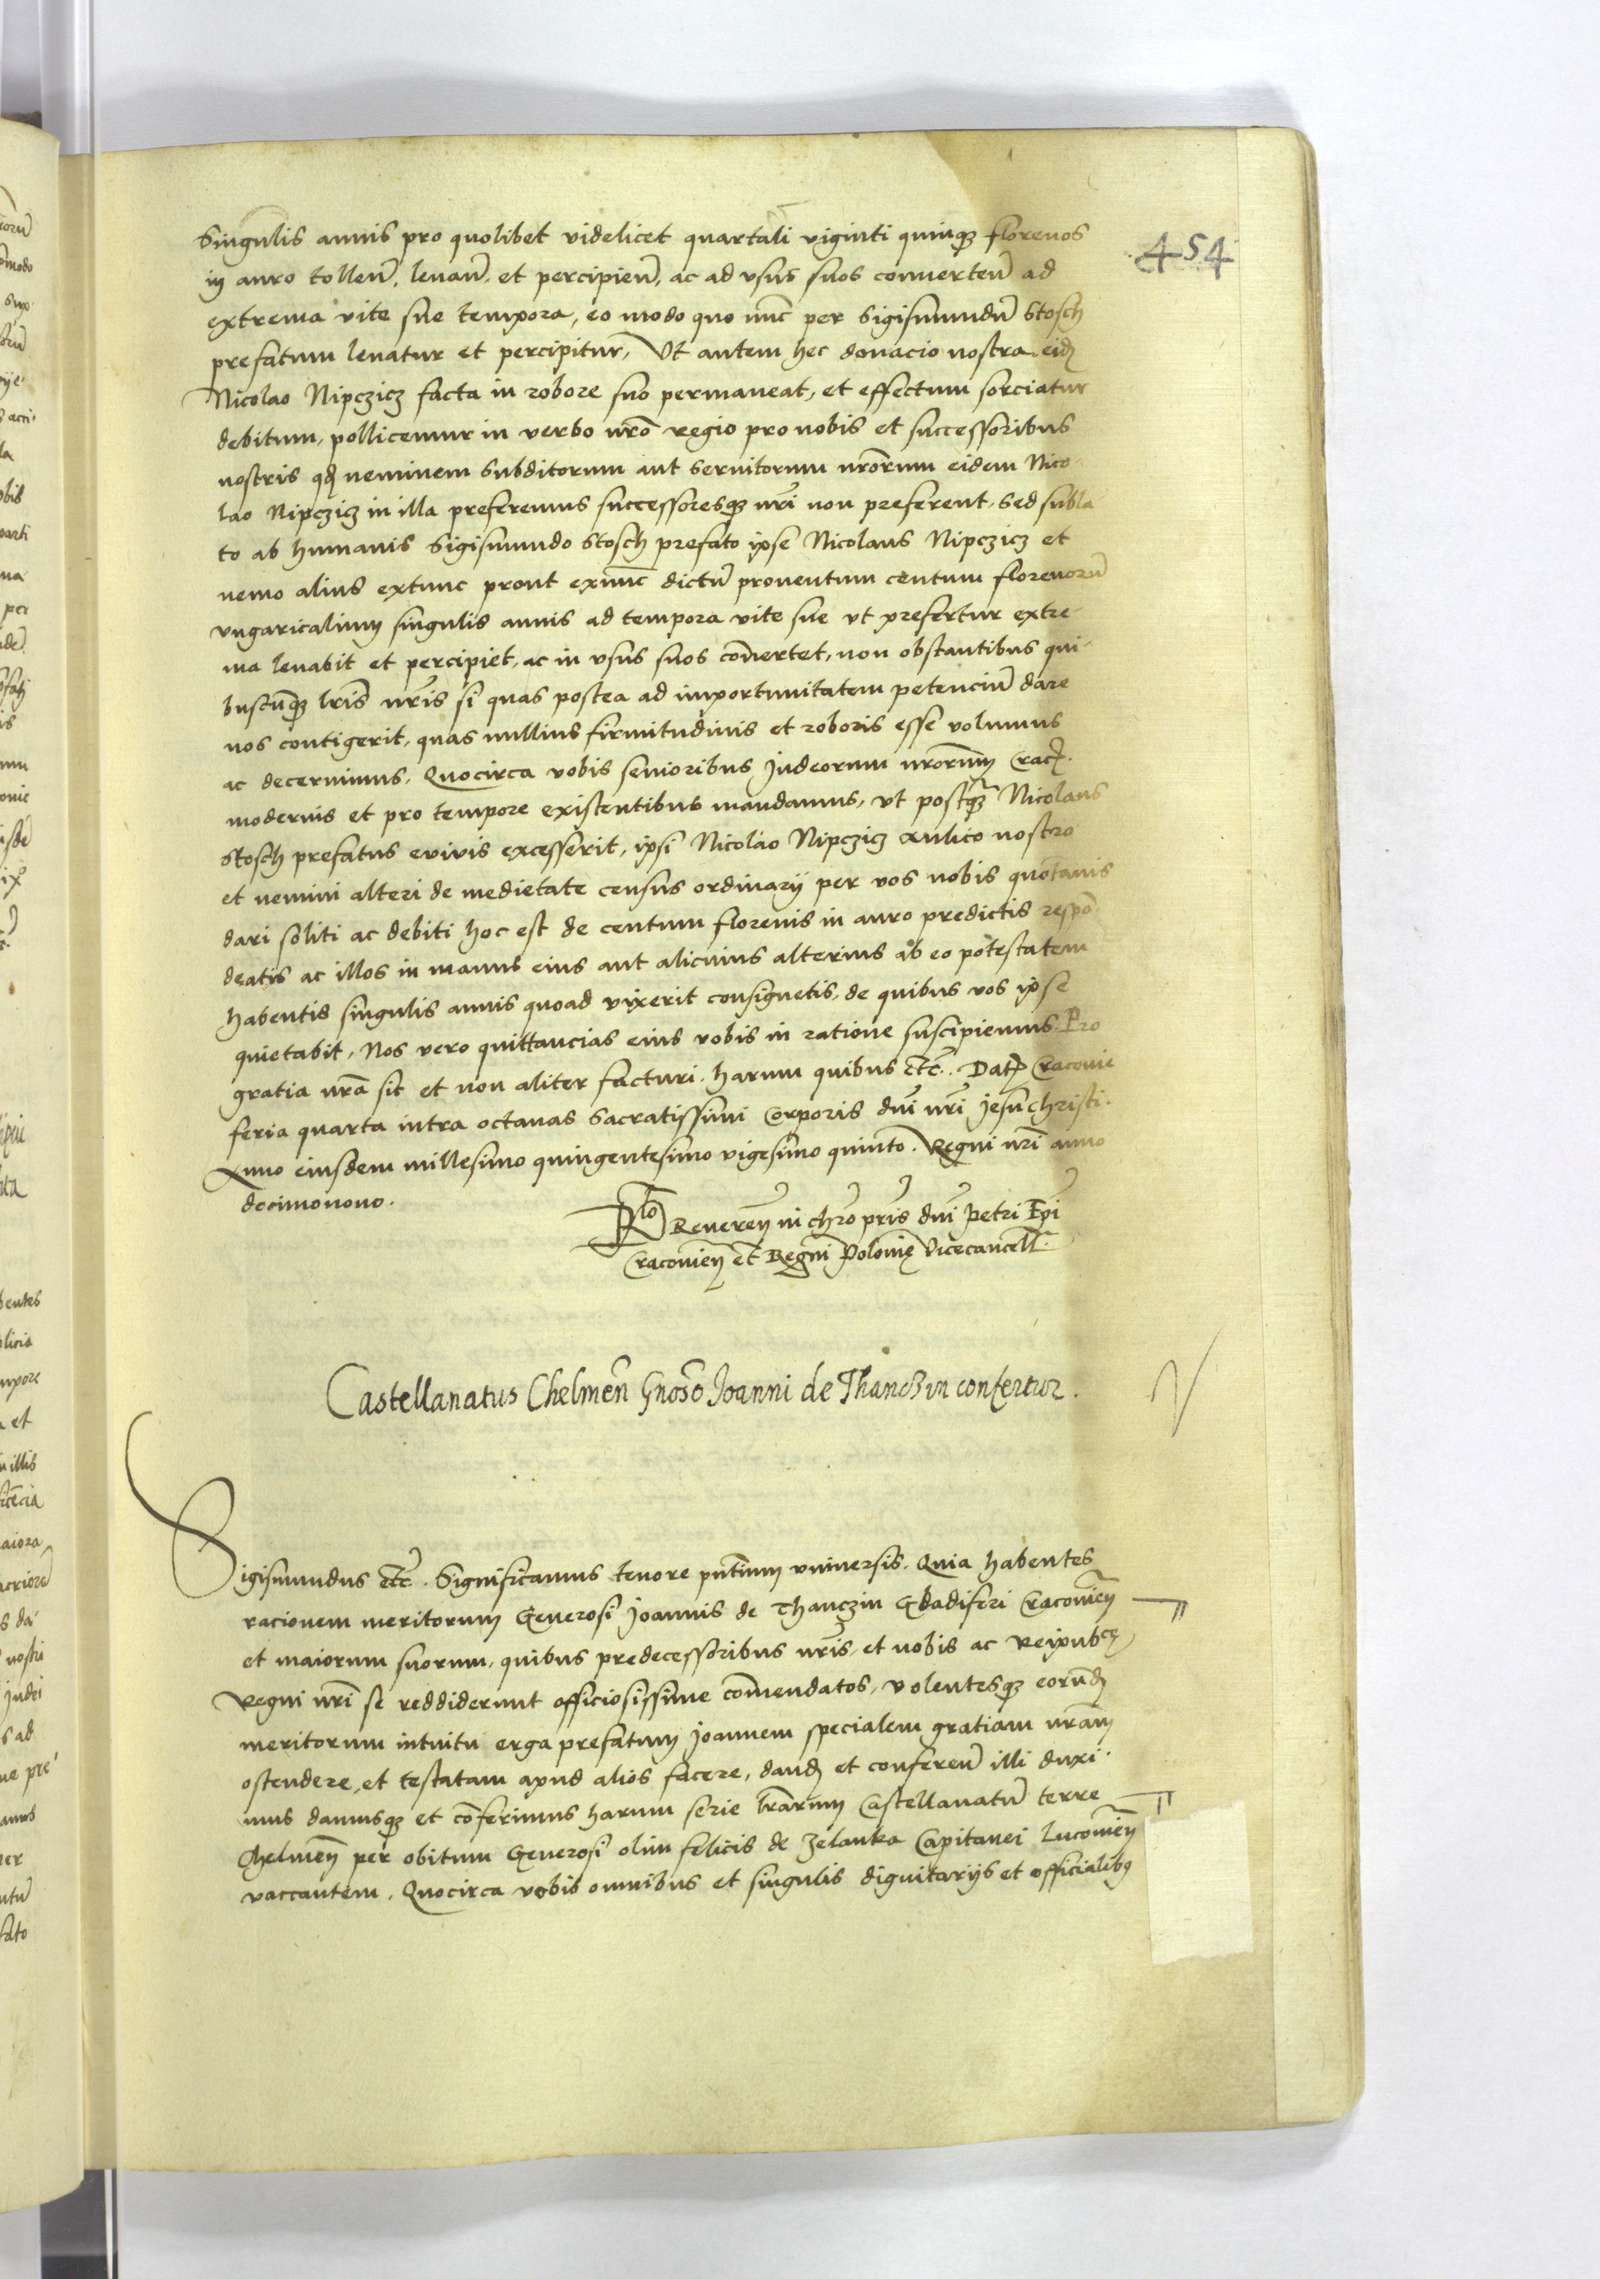 454
Singulis annis pro quolibet videlicet quartali viginti quinqȝ florenos
in auro tolleñ, levañ, et percipieñ, ac ad usus suos converteñ ad
extrema vite sue tempora, eo modo quo nũc per Sigismundũ Stosch
prefatum levatur et percipitur, Ut autem hec donacio nostra eidẽ
Nicolao Nipczicz facta in robore suo permaneat, et effectum sorciatur
debitum, pollicemur in verbo nr̃o regio pro nobis et successoribus
nostris qđ neminem subditorum aut servitorum nr̃orum eidem Nico-
lao Nipczicz in illa preferemus successoresqȝ nr̃i non preferent, sed subla
to ab humanis Sigismundo Stosch prefato ipse Nicolaus Nipczicz et
nemo alius extunc prout exnũc dictũ proventum centum florenorũ
ungaricalium singulis annis ad tempora vite sue ut prefertur extre-
ma levabit et percipiet, ac in usus suos cõvertet, non obstantibus qui-
buscũqȝ lr̃is nr̃is si quas postea ad importunitatem petenciũ dare
nos contigerit, quas nullius firmitudinis et roboris esse volumus
ac decernimus. Quocirca vobis senioribus Judeorum nr̃orum Crac̃.
modernis et pro tempore existentibus mandamus, ut postqȝ Nicolaus
Stosch prefatus evivis excesserit, ipsi Nicolao Nipczicz aulico nostro
et nemini alteri de medietate census ordinarij per vos nobis quotannis
dari soliti ac debiti hoc est de centum florenis in auro predictis respõ-
deatis ac illos in manus eius aut alicuius alterius ab eo potestatem
habentis singulis annis quoad vixerit consignetis, de quibus vos ipse
quietabit, Nos vero quittancias eius vobis in ratione suscipiemus. Pro
gratia nr̃a sit et non aliter facturi. Harum quibus etc̃. Dat̃ Cracovie
feria quarta intra octavas Sacratissimi Corporis dñi nr̃i Jesu Christi.
Anno eiusdem millesimo quingentesimo vigesimo quinto. Regni nr̃i anno
decimonono.
Rlo Revereñ in chro pr̃is dñi Petri Ep̃i
Cracovieñ et Regni Polonię Vicecancell̃.
Castellanatus Chelmeñ Gnoso Joanni de Thanczin confertur.
Sigismundus etc̃. Significamus tenore pñtium universis. Quia habentes
racionem meritorum Generosi Joannis de Thanczin Gladiferi Cracovieñ
et maiorum suorum, quibus predecessoribus nr̃is, et nobis ac Reipubce
Regni nr̃i se reddiderunt officiosissime cõmendatos, volentesqȝ eorundẽ
meritorum intuitu erga prefatum Joannem specialem gratiam nr̃am
ostendere, et testatam apud alios facere, dandẽ et confereñ illi duxi-
mus damusqȝ et cõferimus harum serie lr̃arum Castellanatũ terre
Chelmeñ per obitum Generosi olim felicis de Zelanka Capitanei Lucovieñ
vaccantem. Quocirca vobis omnibus et singulis dignitarijs et officialibꝰ